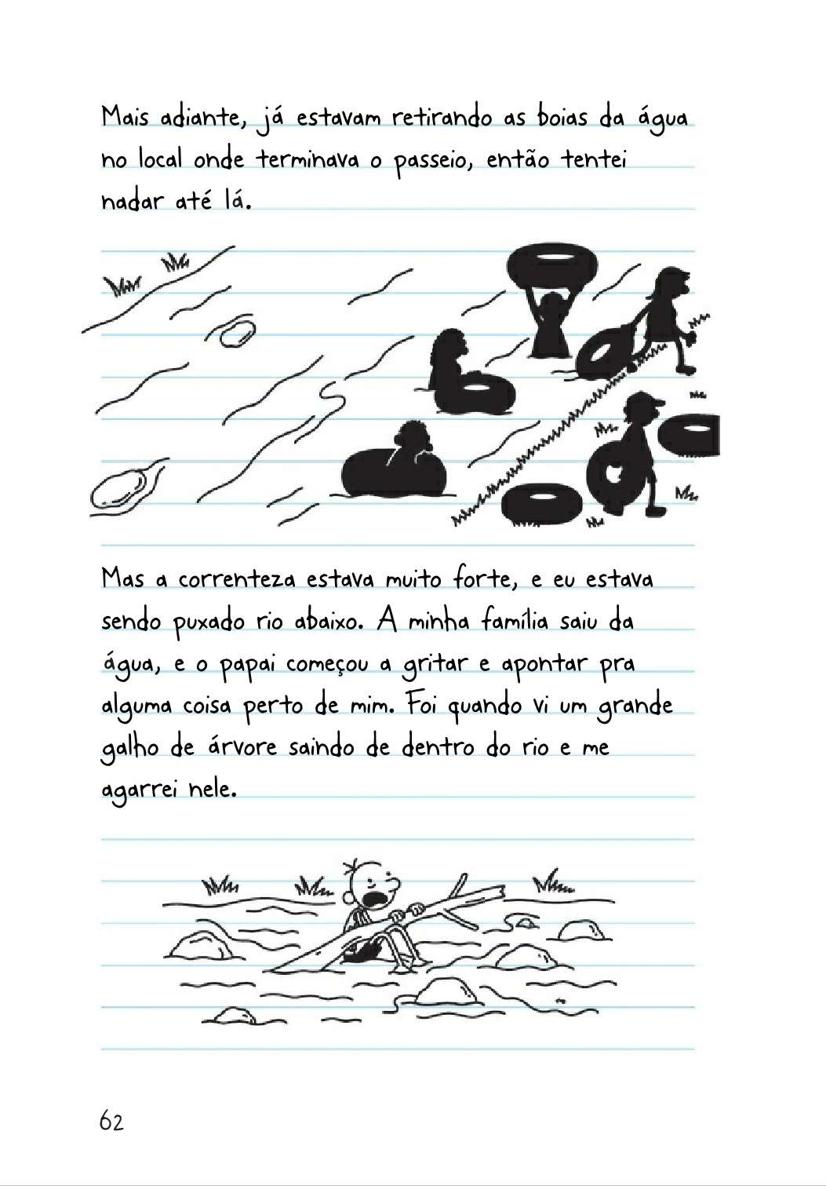 Mais adiante, já estavam retirando as boias da água
no local onde terminava o passeio, então tentei
nadar até lá.
Mas a correnteza estava muito forte, e eu estava
sendo puxado rio abaixo. A minha família saiu da
água, e o papai começou a gritar e apontar pra
alguma coisa perto de mim. Foi quando vi um grande
galho de árvore saindo de dentro do rio e me
agarrei nele.
62